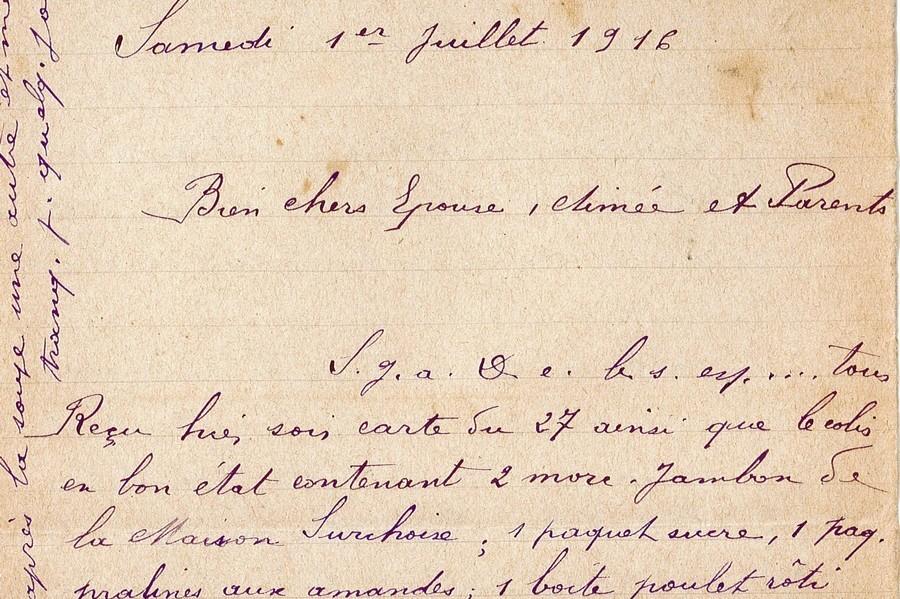 Samedi 1er Juillet 1916
Bien chers Epouse, Aimée et Parents
S. g. a. D. e. b. s. esp.... tous
Reçu hier soir carte du 27 ainsi que le colis
en bon état contenant 2 morc. Jambon de
la Maison Surchoise ; 1 paquet sucre, 1 paq.
pralines aux amandes ; 1 boîte poulet rôti
après la soupe une autre et m
tranq. p. quelq. jo